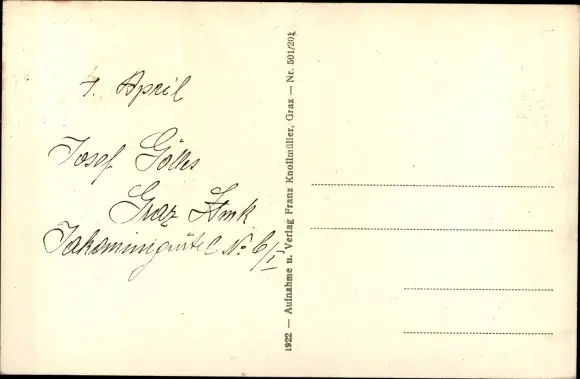 4. April
Josef Gölles
Graz Stmk
Jakominigürtel No 6/I
1922 — Aufnahme u. Verlag Franz Knollmüller, Graz — Nr. 501/201